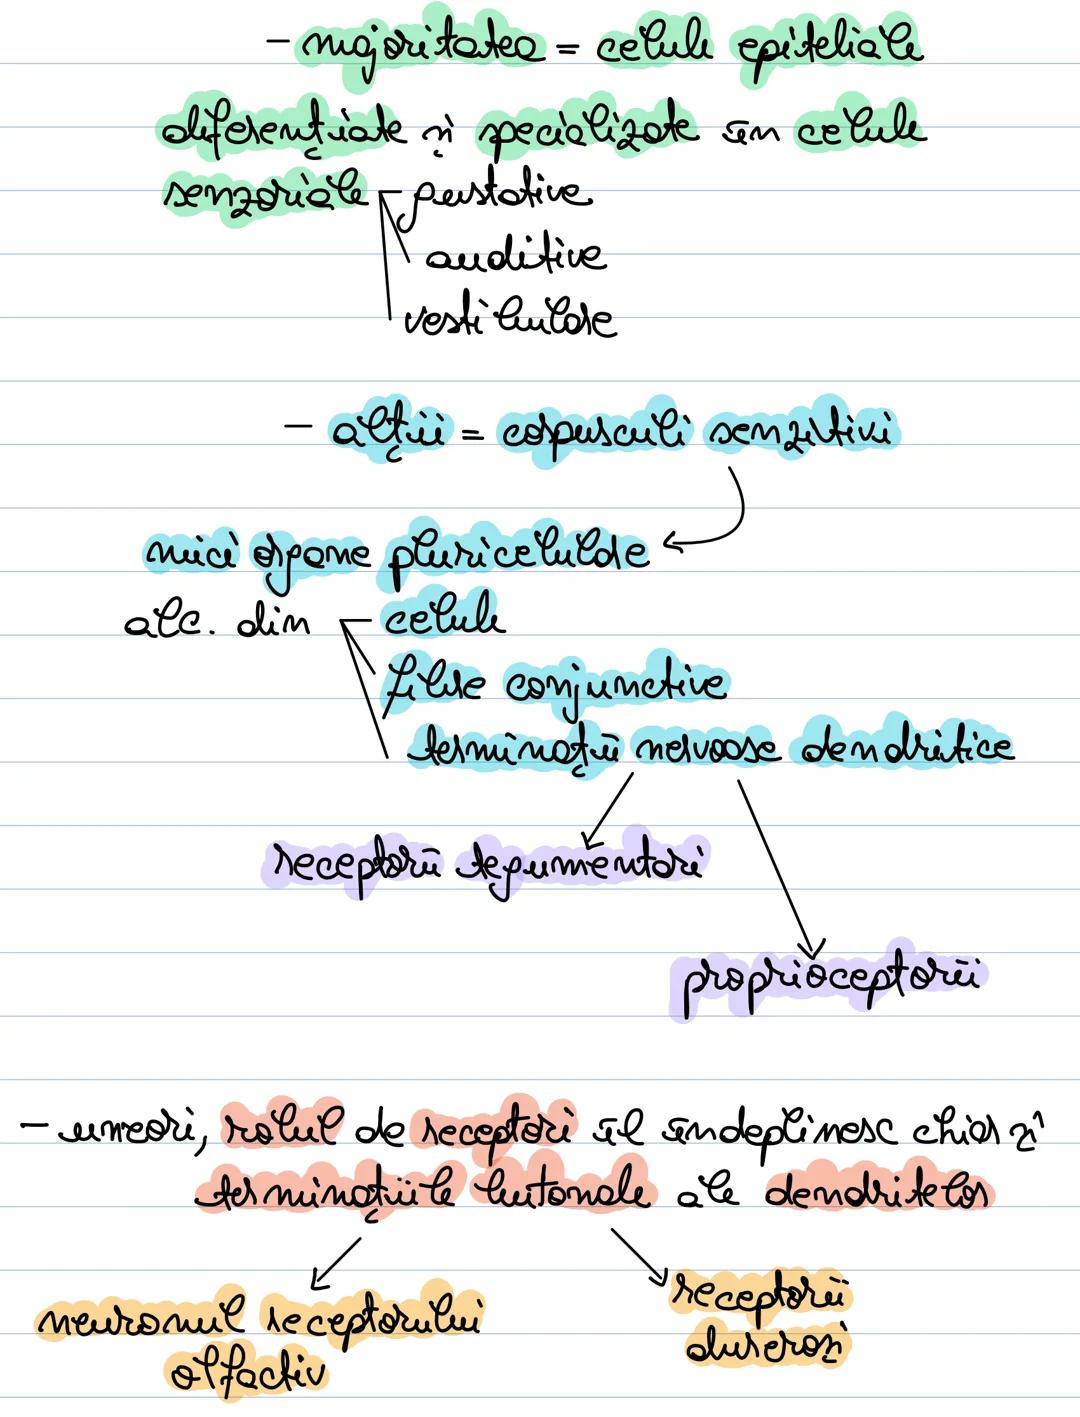 - majoritatea = celule epiteliale
diferențiate și specializate în celule
senzoriale gustative
auditive
vestibulare
- alții = corpusculi senzitivi
mici organe pluricelulare
alc. din celule
fibre conjunctive
terminații nervoase dendritice
receptorii tegumentari
proprioceptorii
- uneori, rolul de receptori îl îndeplinesc chiar și
terminațiile butonale ale dendritelor
neuronul receptorului
olfactiv
receptorii
dureroși